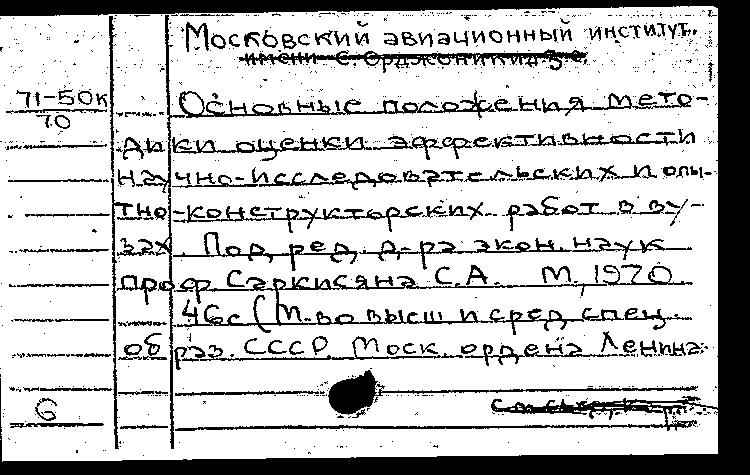 Московский авиационный институт.
имени С. Орджоникидзе
71-50к
70
Основные положения мето-
дики оценки эффективности
научно-исследовательских и опы-
тно-конструкторских работ в ву-
зах. Под ред. д-ра экон. наук
проф. Саркисяна С.А. М., 1970.
46с (М-во высш. и сред. спец.
образ. СССР. Моск. ордена Ленина
6